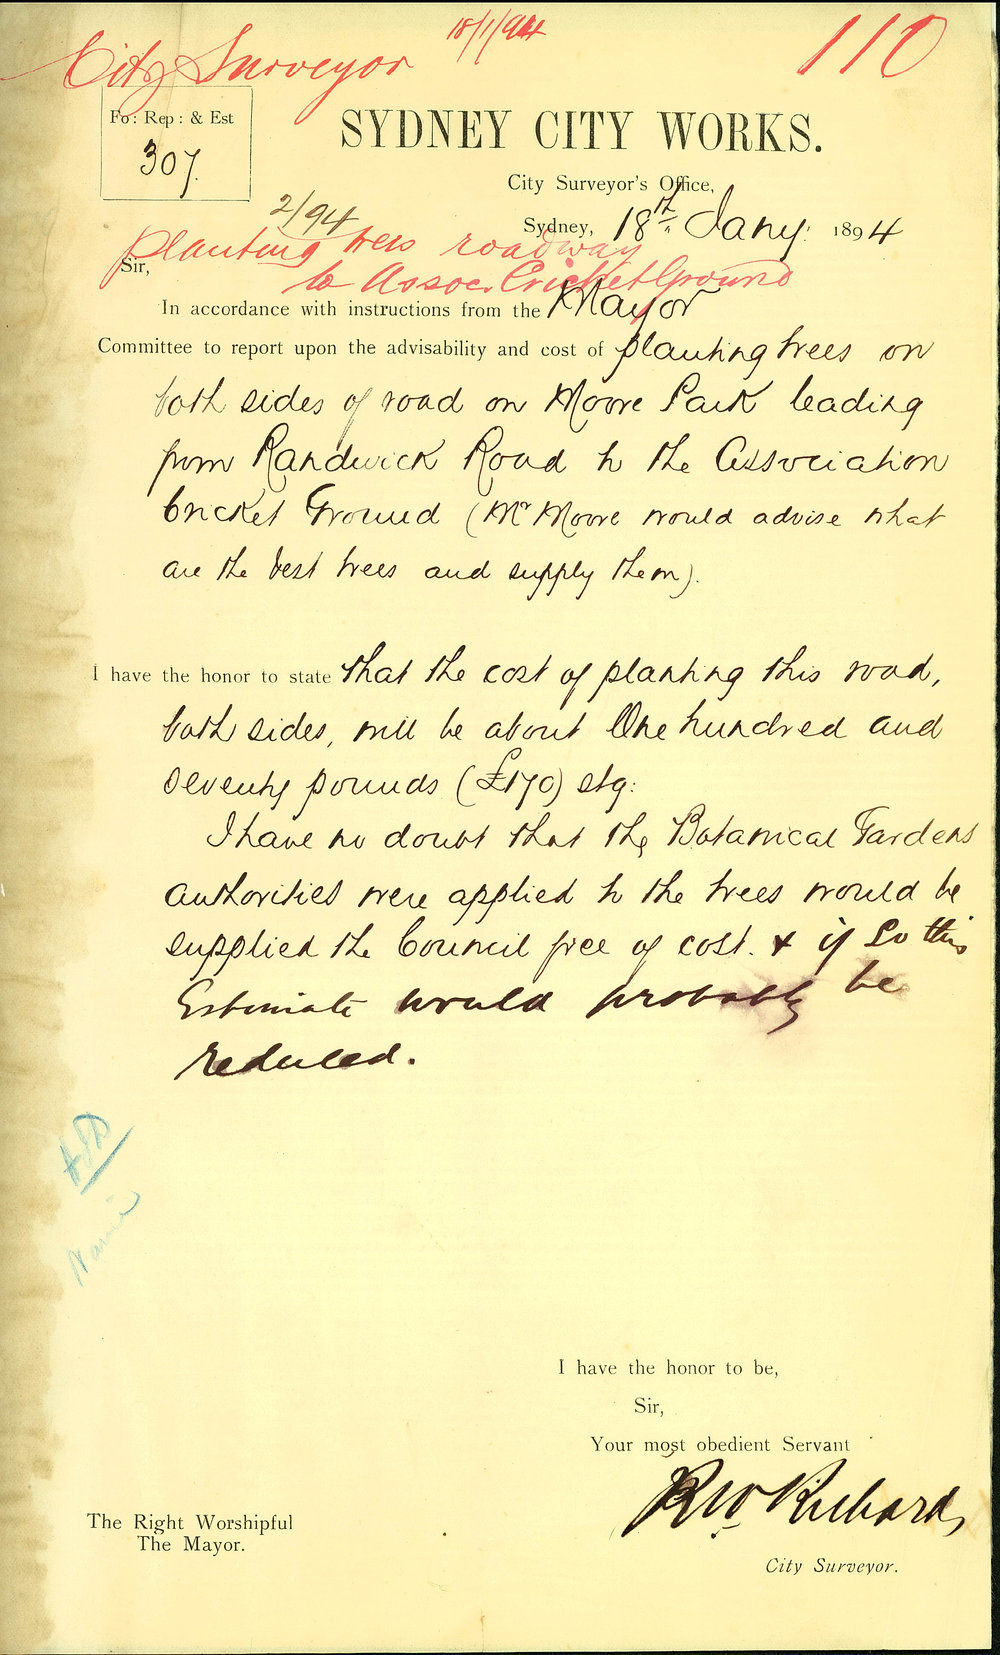 18/1/94
110
City Surveyor
Fo: Rep: & Est
307.
SYDNEY CITY WORKS.
City Surveyor's Office,
2/94
Sydney, 18th Jany: 1894
Planting trees roadway
Sir,
to Assoc. Cricket Ground
In accordance with instructions from the Mayor
Committee to report upon the advisability and cost of planting trees on
both sides of road on Moore Park leading
from Randwick Road to the Association
Cricket Ground (Mr Moore would advise what
are the best trees and supply them).
I have the honor to state that the cost of planting this road,
both sides, will be about One hundred and
seventy pounds (£170) stg:
I have no doubt that the Botanical Gardens
authorities were applied to the trees would be
supplied the Council free of cost. & if so this
Estimate would probably be
reduced.
I have the honor to be,
Sir,
Your most obedient Servant
R W Richards
The Right Worshipful
The Mayor.
City Surveyor.